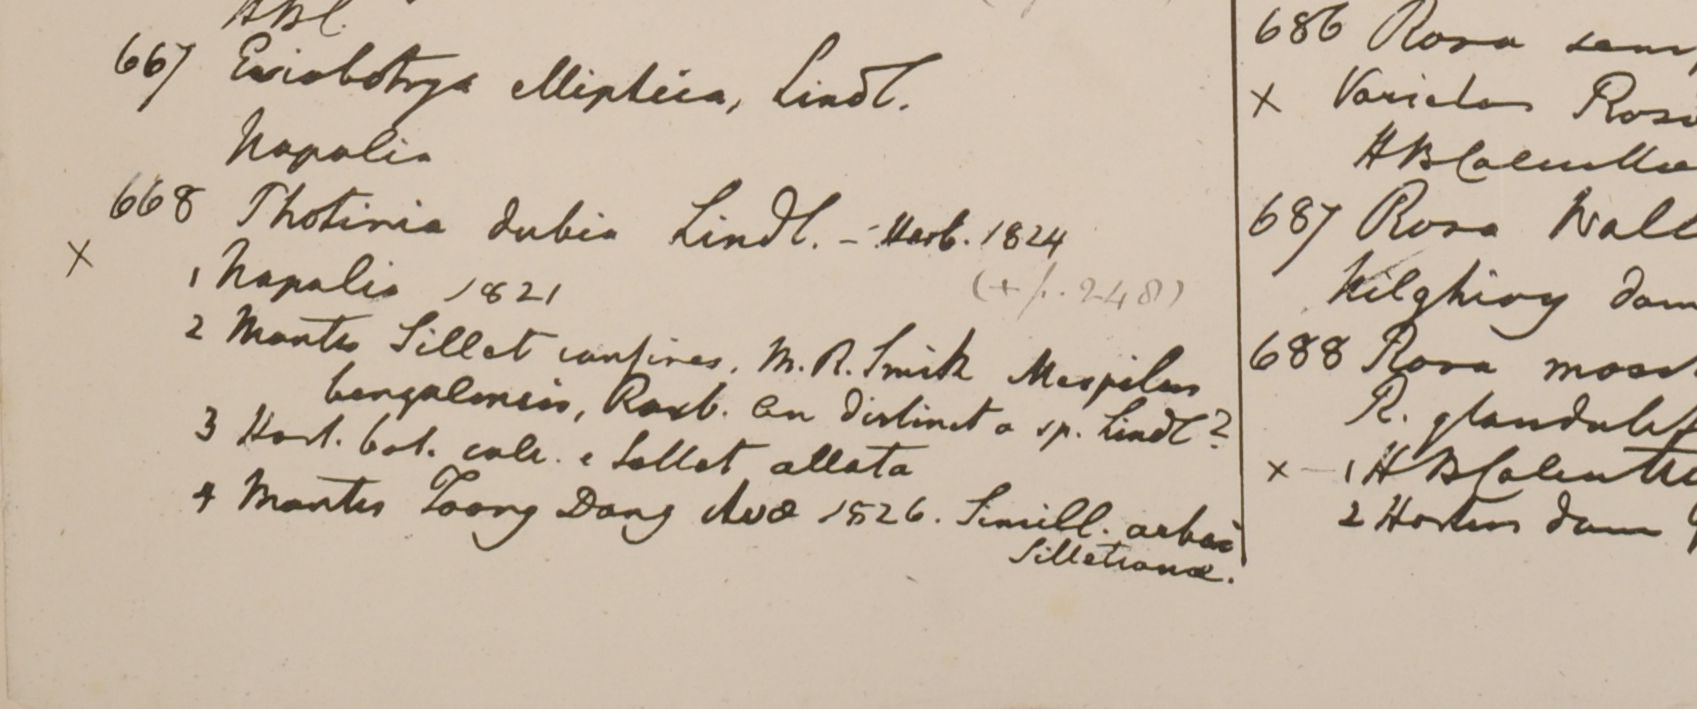 HBC.
667 Eriobotrya elliptica, Lindl.
Napalia
668 Photinia dubia Lindl. - Herb. 1824
x 1 Napalia 1821 (+ p. 248)
2 Montes Sillet confines, M.R. Smith Mespilus
bengalensis, Roxb. an distincta sp. Lindl?
3 Hort. bot. calc. e Sillet allata
4 Montis Toong Dong Ava 1826. Simill. arbori
Silletianæ.
686 Rosa sem
x Varietas Rosa
HBCalcutta
687 Rosa Wall
Kilghiry dom
688 Rosa mosch
R. glandulif
x - 1 HBCalcutta
2 Hortus dom